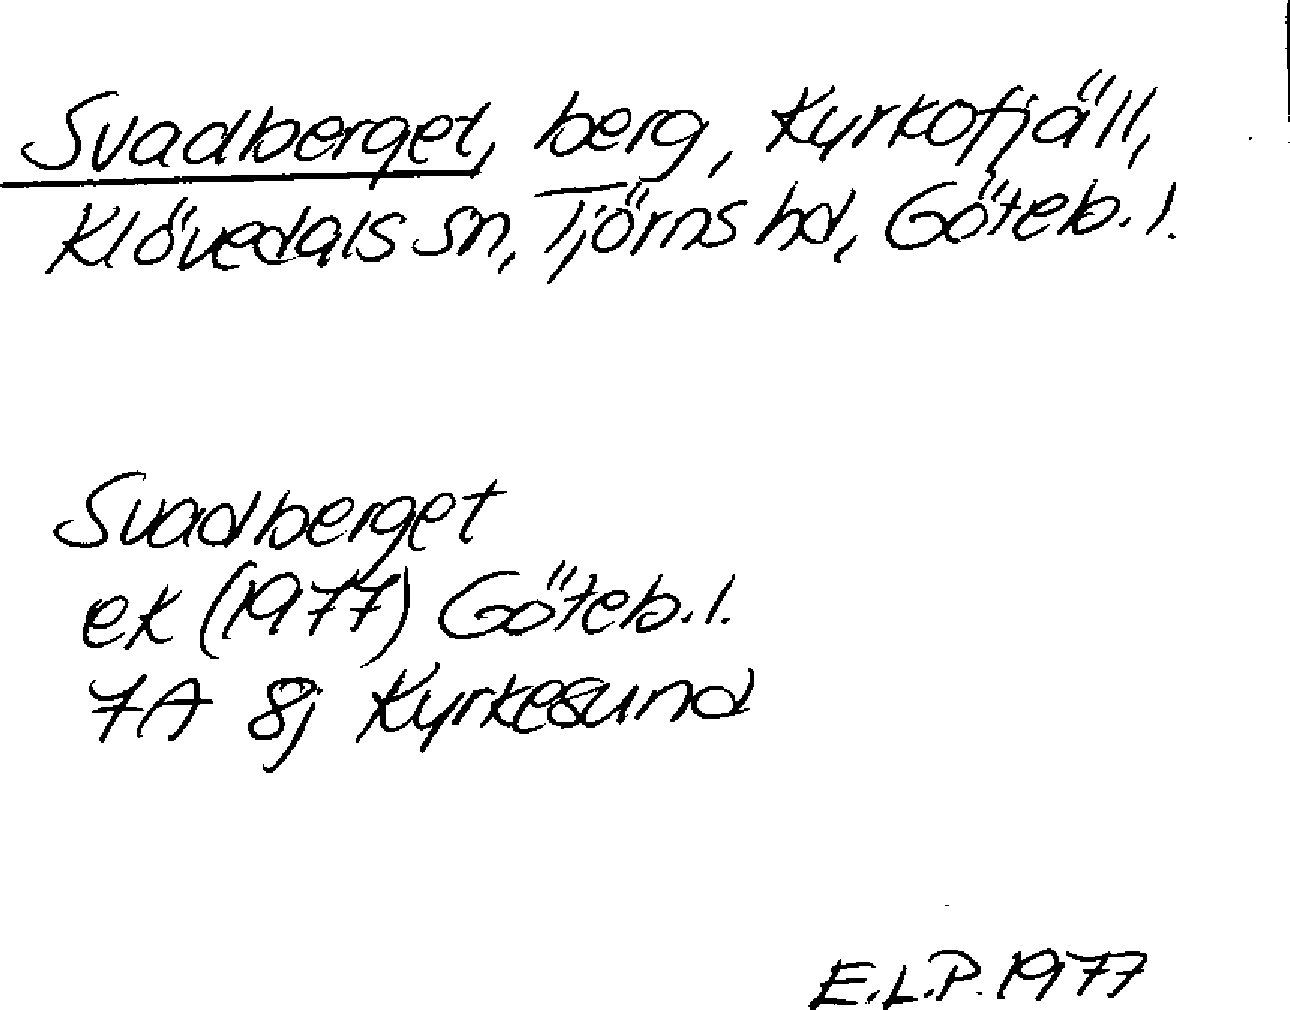 Svadberget, berg, Kyrkofjäll,
Klövedals sn, Tjörns hd, Göteb. l.
Svadberget
ek (1977) Göteb. l.
7A 8j Kyrkesund
E.L.P. 1977